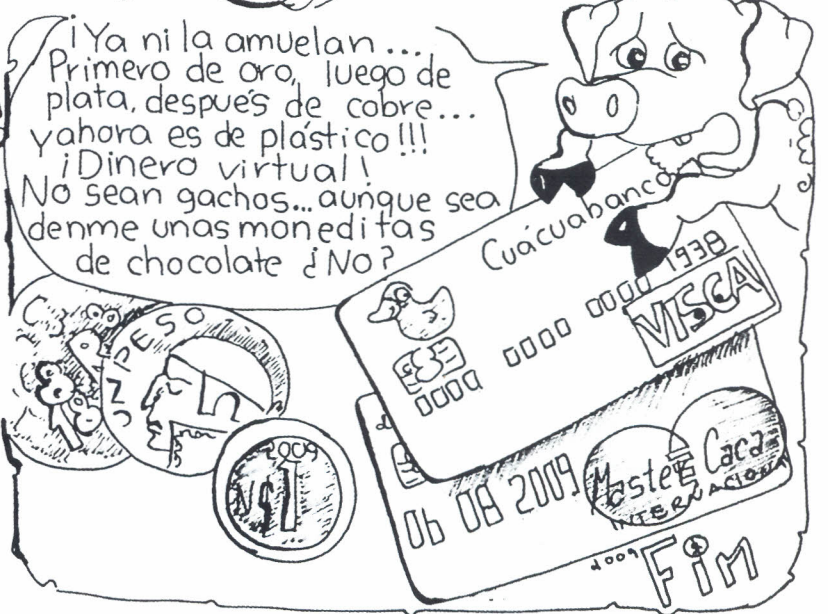 ¡Ya ni la amuelan...
Primero de oro, luego de
plata, después de cobre...
y ahora es de plástico!!!
¡Dinero virtual!
No sean gachos... aunque sea
denme unas moneditas
de chocolate ¿No?
Cuácuabanco
1938
0000 0000 0000
VISCA
UN PESO
2009
N$1
06 08 2009
Master Caca
INTERNACIONAL
2009
Fin